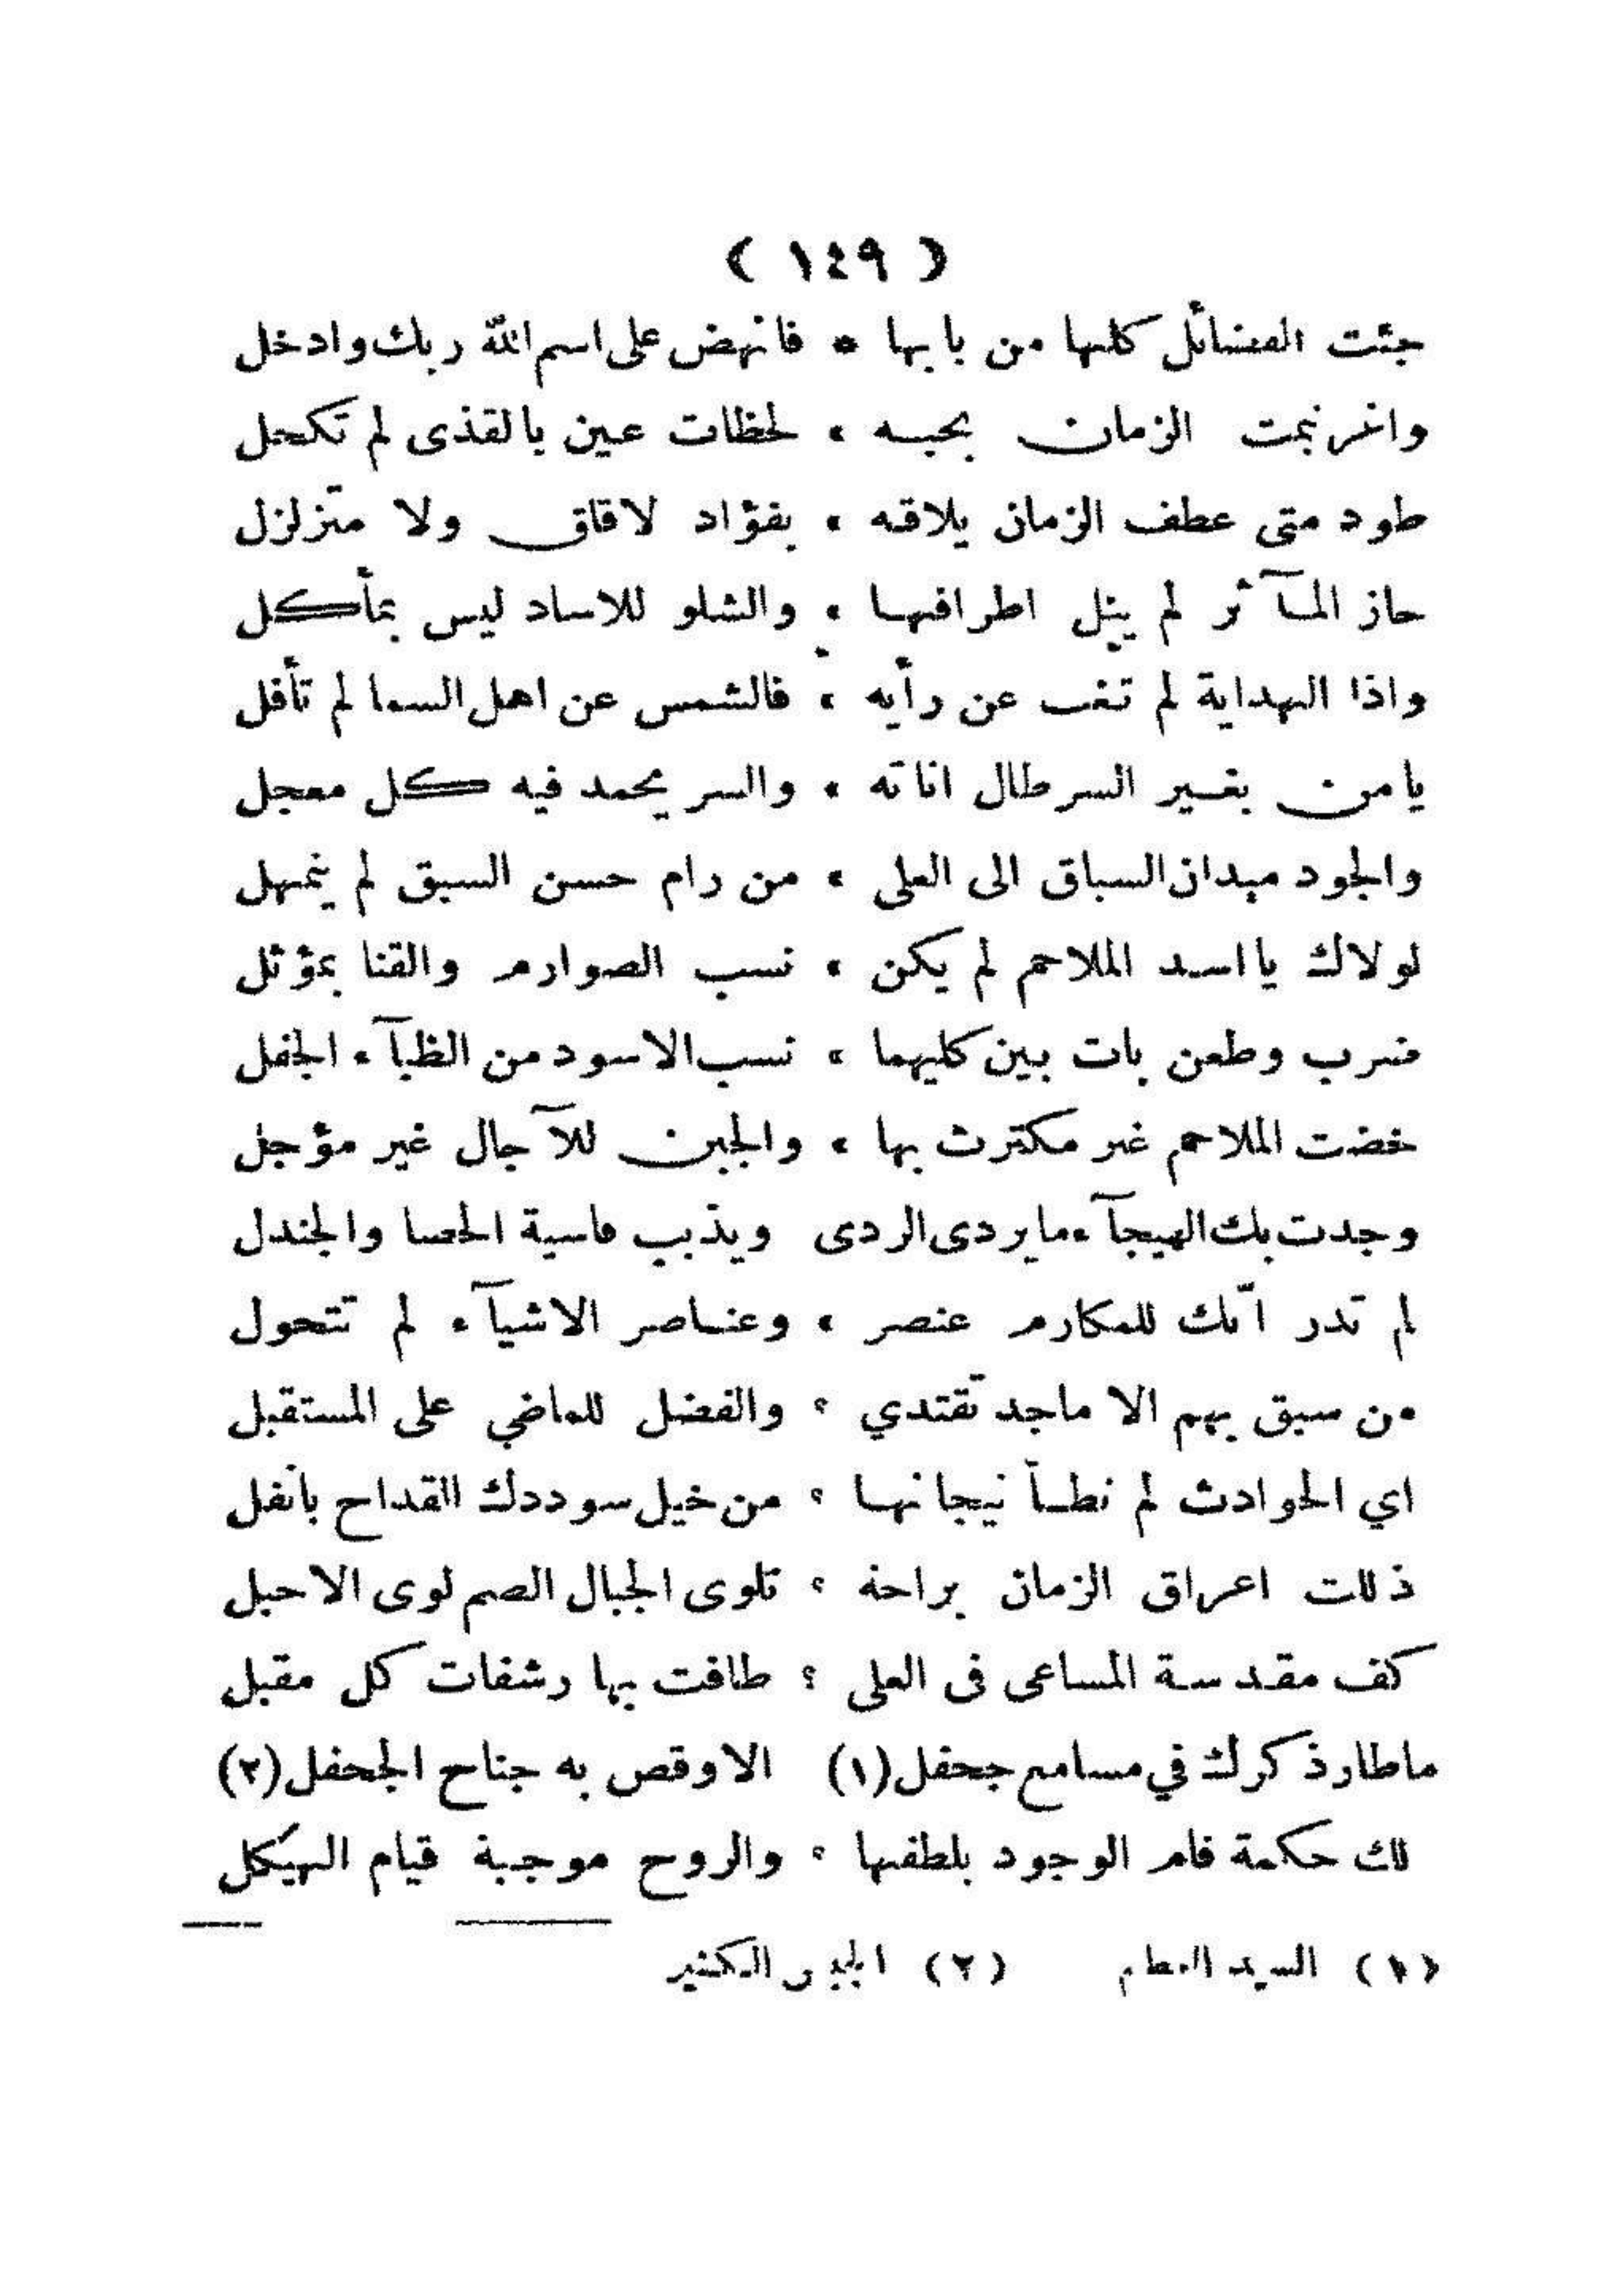 ( ١٤٩ )
جئت الفضائل كلها من بابها * فانهض على اسم الله ربك وادخل
واغر نيمت الزمان بحبه * لحظات عين بالقذى لم تكحل
طود متى عطف الزمان يلاقه * بفؤاد لاقاق ولا متزلزل
حاز المآثر لم ينل اطرافها * والشلو للاساد ليس بمأكل
واذا الهداية لم تغب عن رأيه * فالشمس عن اهل السما لم تأفل
يا من بغير السر طال اناته * والسر يحمد فيه كل معجل
والجود ميدان السباق الى العلى * من رام حسن السبق لم يتمهل
لولاك يا اسد الملاحم لم يكن * نسب الصوارم والقنا بمؤثل
ضرب وطعن بات بين كليهما * نسب الاسود من الظبآء الجفل
خضت الملاحم غير مكترث بها * والجبن للآجال غير مؤجل
وجدت بك الهيجآء ما يردى الردى ويذيب قاسية الحصا والجندل
لم تدر انّك للمكارم عنصر * وعناصر الاشيآء لم تتحول
من سبق بهم الا ماجد تقتدي * والفضل للماضي على المستقبل
اي الحوادث لم نطأ تيجانها * من خيل سوددك القداح بانفل
ذللت اعراق الزمان براحة * تلوى الجبال الصم لوى الاحبل
كف مقدسة المساعى فى العلى * طافت بها رشفات كل مقبل
ما طار ذكرك في مسامع جحفل (١) الا وقص به جناح الجحفل (٢)
لك حكمة قام الوجود بلطفها * والروح موجبة قيام الهيكل
(١) السيد المعظم (٢) الجيش الكثير